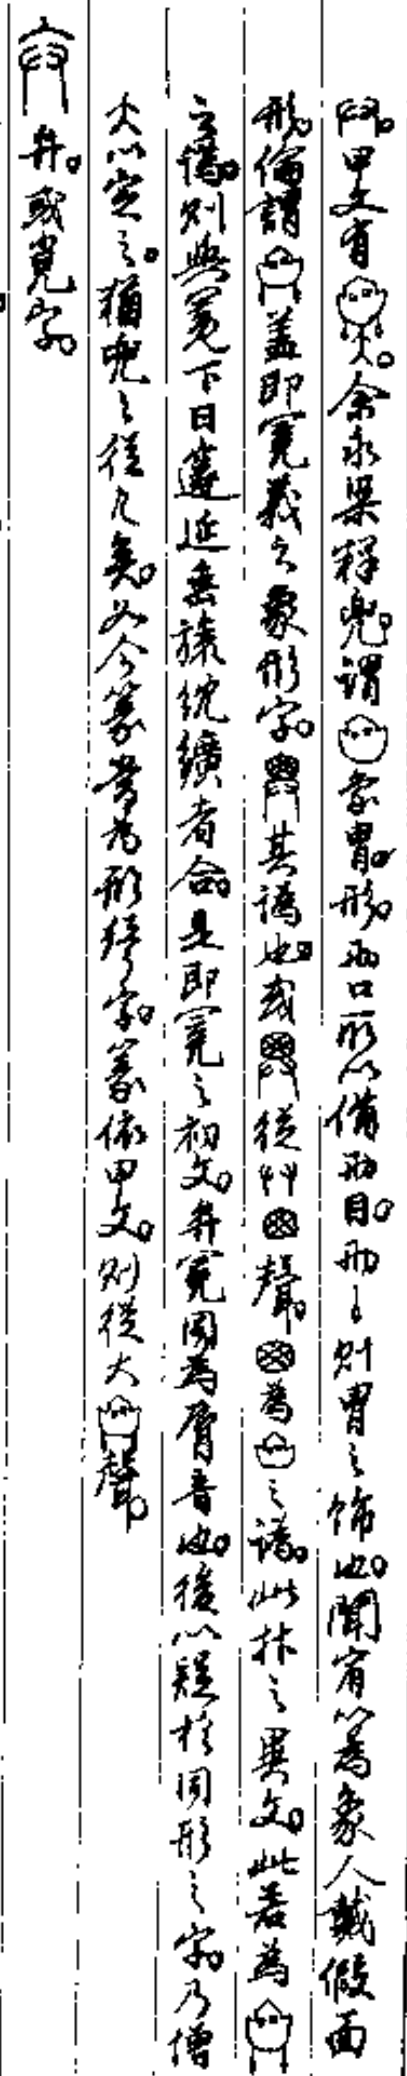 甲文有。余永梁釋兜。謂象冑形。兩口所以備兩目。兩則冑之飾也。聞宥以為象人戴假面
形。倫謂蓋即冕義之象形字。其譌也。或從艸聲。為之譌。此弁之異文。此若為
之譌。則與冕下曰邃延垂旒紞纊者合。是即冕之初文。弁冕固為脣音也。後以疑於同形之字。乃增
大以定之。猶兜之從儿矣。如今篆當為形聲字。篆依甲文。則從大聲
弁。或冕字。